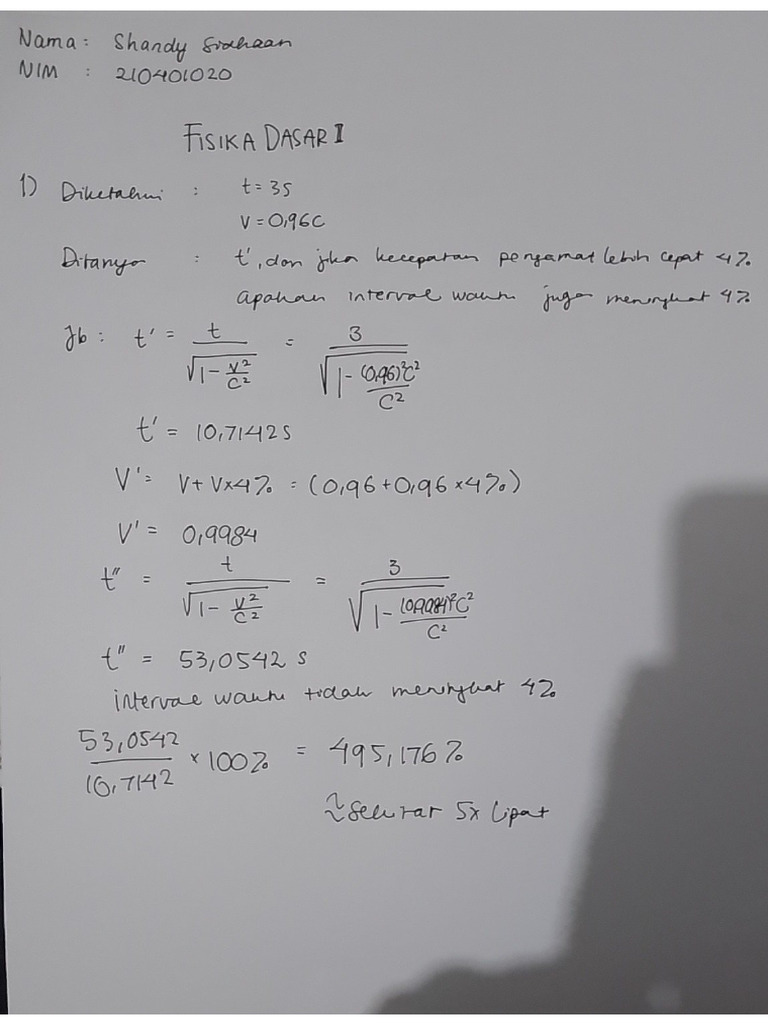 Nama: Shandy Siahaan
NIM : 210401020
FISIKA DASAR I
1) Diketahui : t = 3s
V = 0,96C
Ditanya : t', dan jika kecepatan pengamat lebih cepat 4%
apakah interval waktu juga meningkat 4%
Jb : t' = t / √(1 - V²/C²) = 3 / √(1 - (0,96)²C²/C²)
t' = 10,7142 s
V' = V + V×4% = (0,96 + 0,96 × 4%)
V' = 0,9984
t'' = t / √(1 - V²/C²) = 3 / √(1 - (0,9984)²C²/C²)
t'' = 53,0542 s
interval waktu tidak meningkat 4%
53,0542 / 10,7142 × 100% = 495,176%
≈ Sekitar 5x lipat